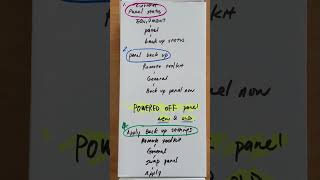 1. Current
Panel status
EQUIPMENT
panel
backup status
2. panel back up
Remote toolkit
General
Back up panel now
POWERED OFF panel
new & old
Apply Back up settings
Remote toolkit
General
swap panel
Apply